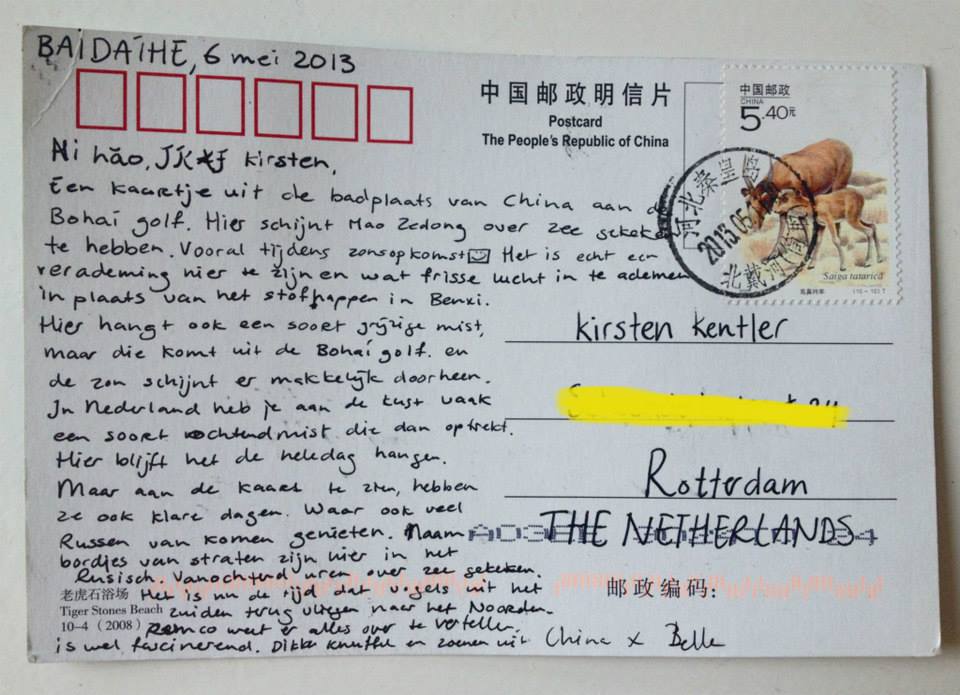 BAIDAIHE, 6 mei 2013
中国邮政明信片
Postcard
The People's Republic of China
中国邮政
CHINA
5.40元
Saiga tatarica
河北秦皇岛
2013.05.
北戴河
Ni hăo, 你好 Kirsten,
Een kaartje uit de badplaats van China aan de
Bohai golf. Hier schijnt Mao Zedong over zee gekeken
te hebben. Vooral tijdens zonsopkomst Het is echt een
verademing hier te zijn en wat frisse lucht in te ademen
in plaats van het stofhappen in Benxi.
Hier hangt ook een soort grijzige mist,
maar die komt uit de Bohai golf. en
de zon schijnt er makkelijk doorheen.
In Nederland heb je aan de kust vaak
een soort ochtendmist die dan optrekt.
Hier blijft het de heledag hangen.
Maar aan de kaart te zien, hebben
ze ook klare dagen. Waar ook veel
Russen van komen genieten. Naam
bordjes van straten zijn hier in het
Rusisch. Vanochtend uren over zee gekeken.
Het is nu de tijd dat vogels uit het
zuiden terug vliegen naar het Noorden.
Remco weet er alles over te vertellen.
is wel fascinerend. Dikke knuffel en zoenen uit China x Belle
Kirsten Kentler
Rotterdam
THE NETHERLANDS
邮政编码:
老虎石浴场
Tiger Stones Beach
10-4 (2008)